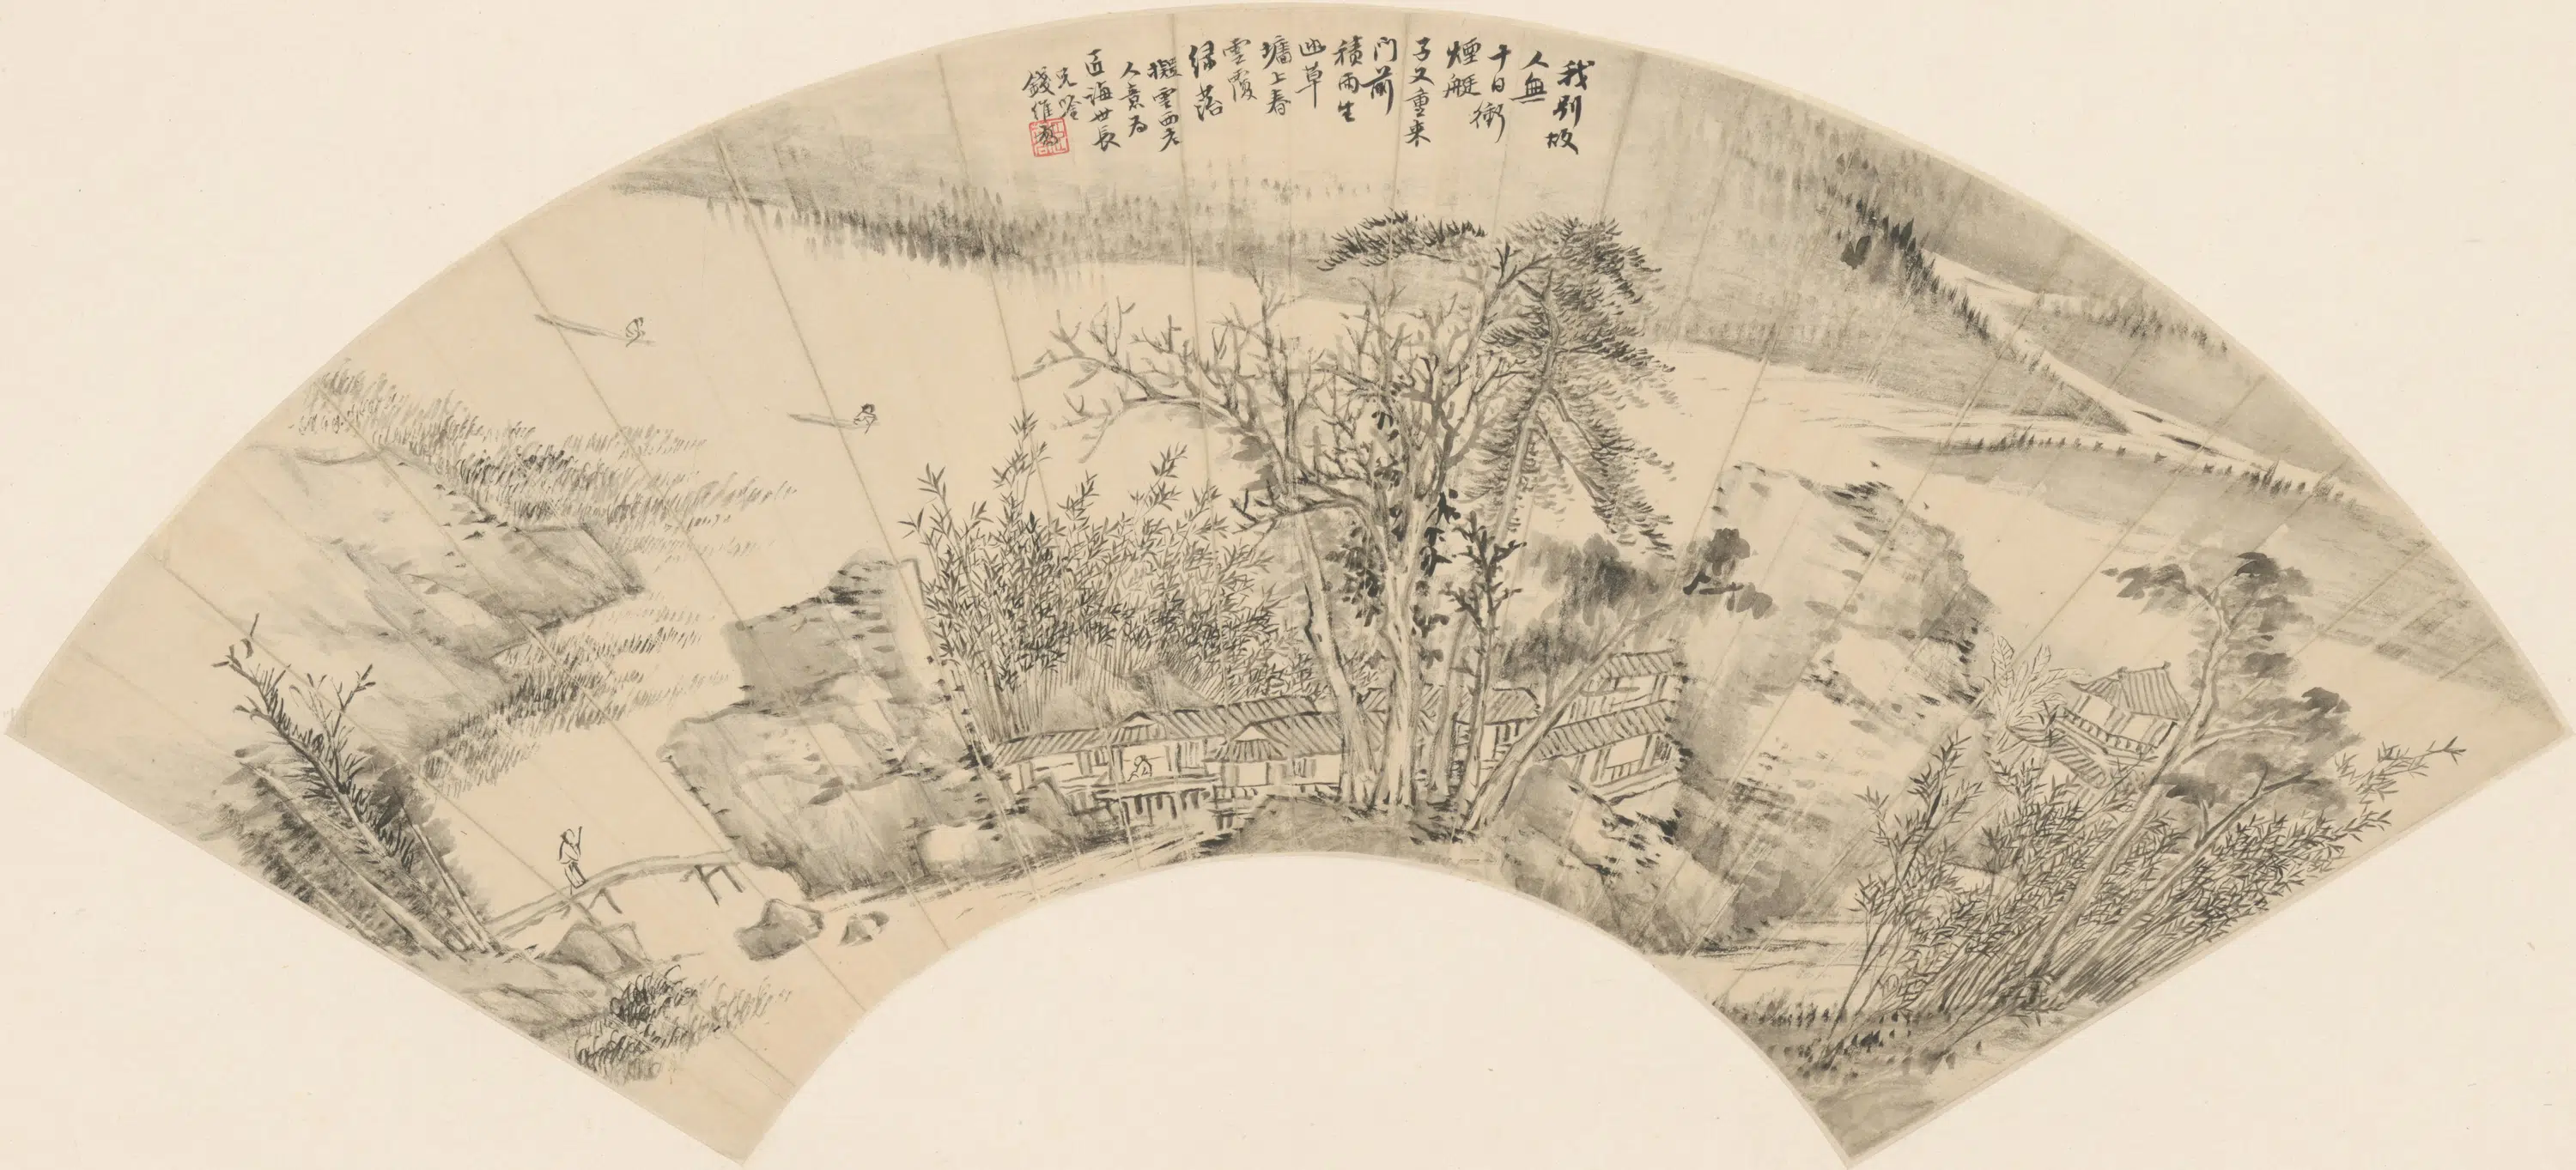 我別故
人無
十日衝
煙艇
子又重來
門前
積雨生
幽草
墻上春
雲覆
綠苔
擬雲西老
人意為
匠海世長
兄
錢維喬